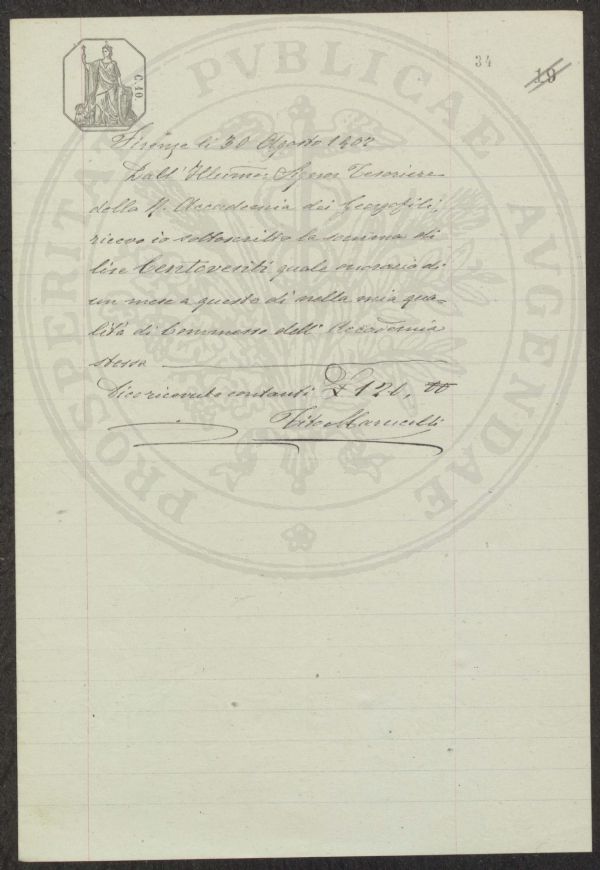 34
19
C. 40
Firenze li 30 Agosto 1902
Dall' Illumo: Signor Tesoriere
della R. Accademia dei Georgofili,
ricevo io sottoscritto la somma di
lire Centoventi quale onorario di
un mese a questo dì nella mia qua-
lità di Commesso dell' Accademia
stessa
Dico ricevute contanti £ 120, 00
Tito Marucelli
PROSPERITATI PVBLICAE AVGENDAE